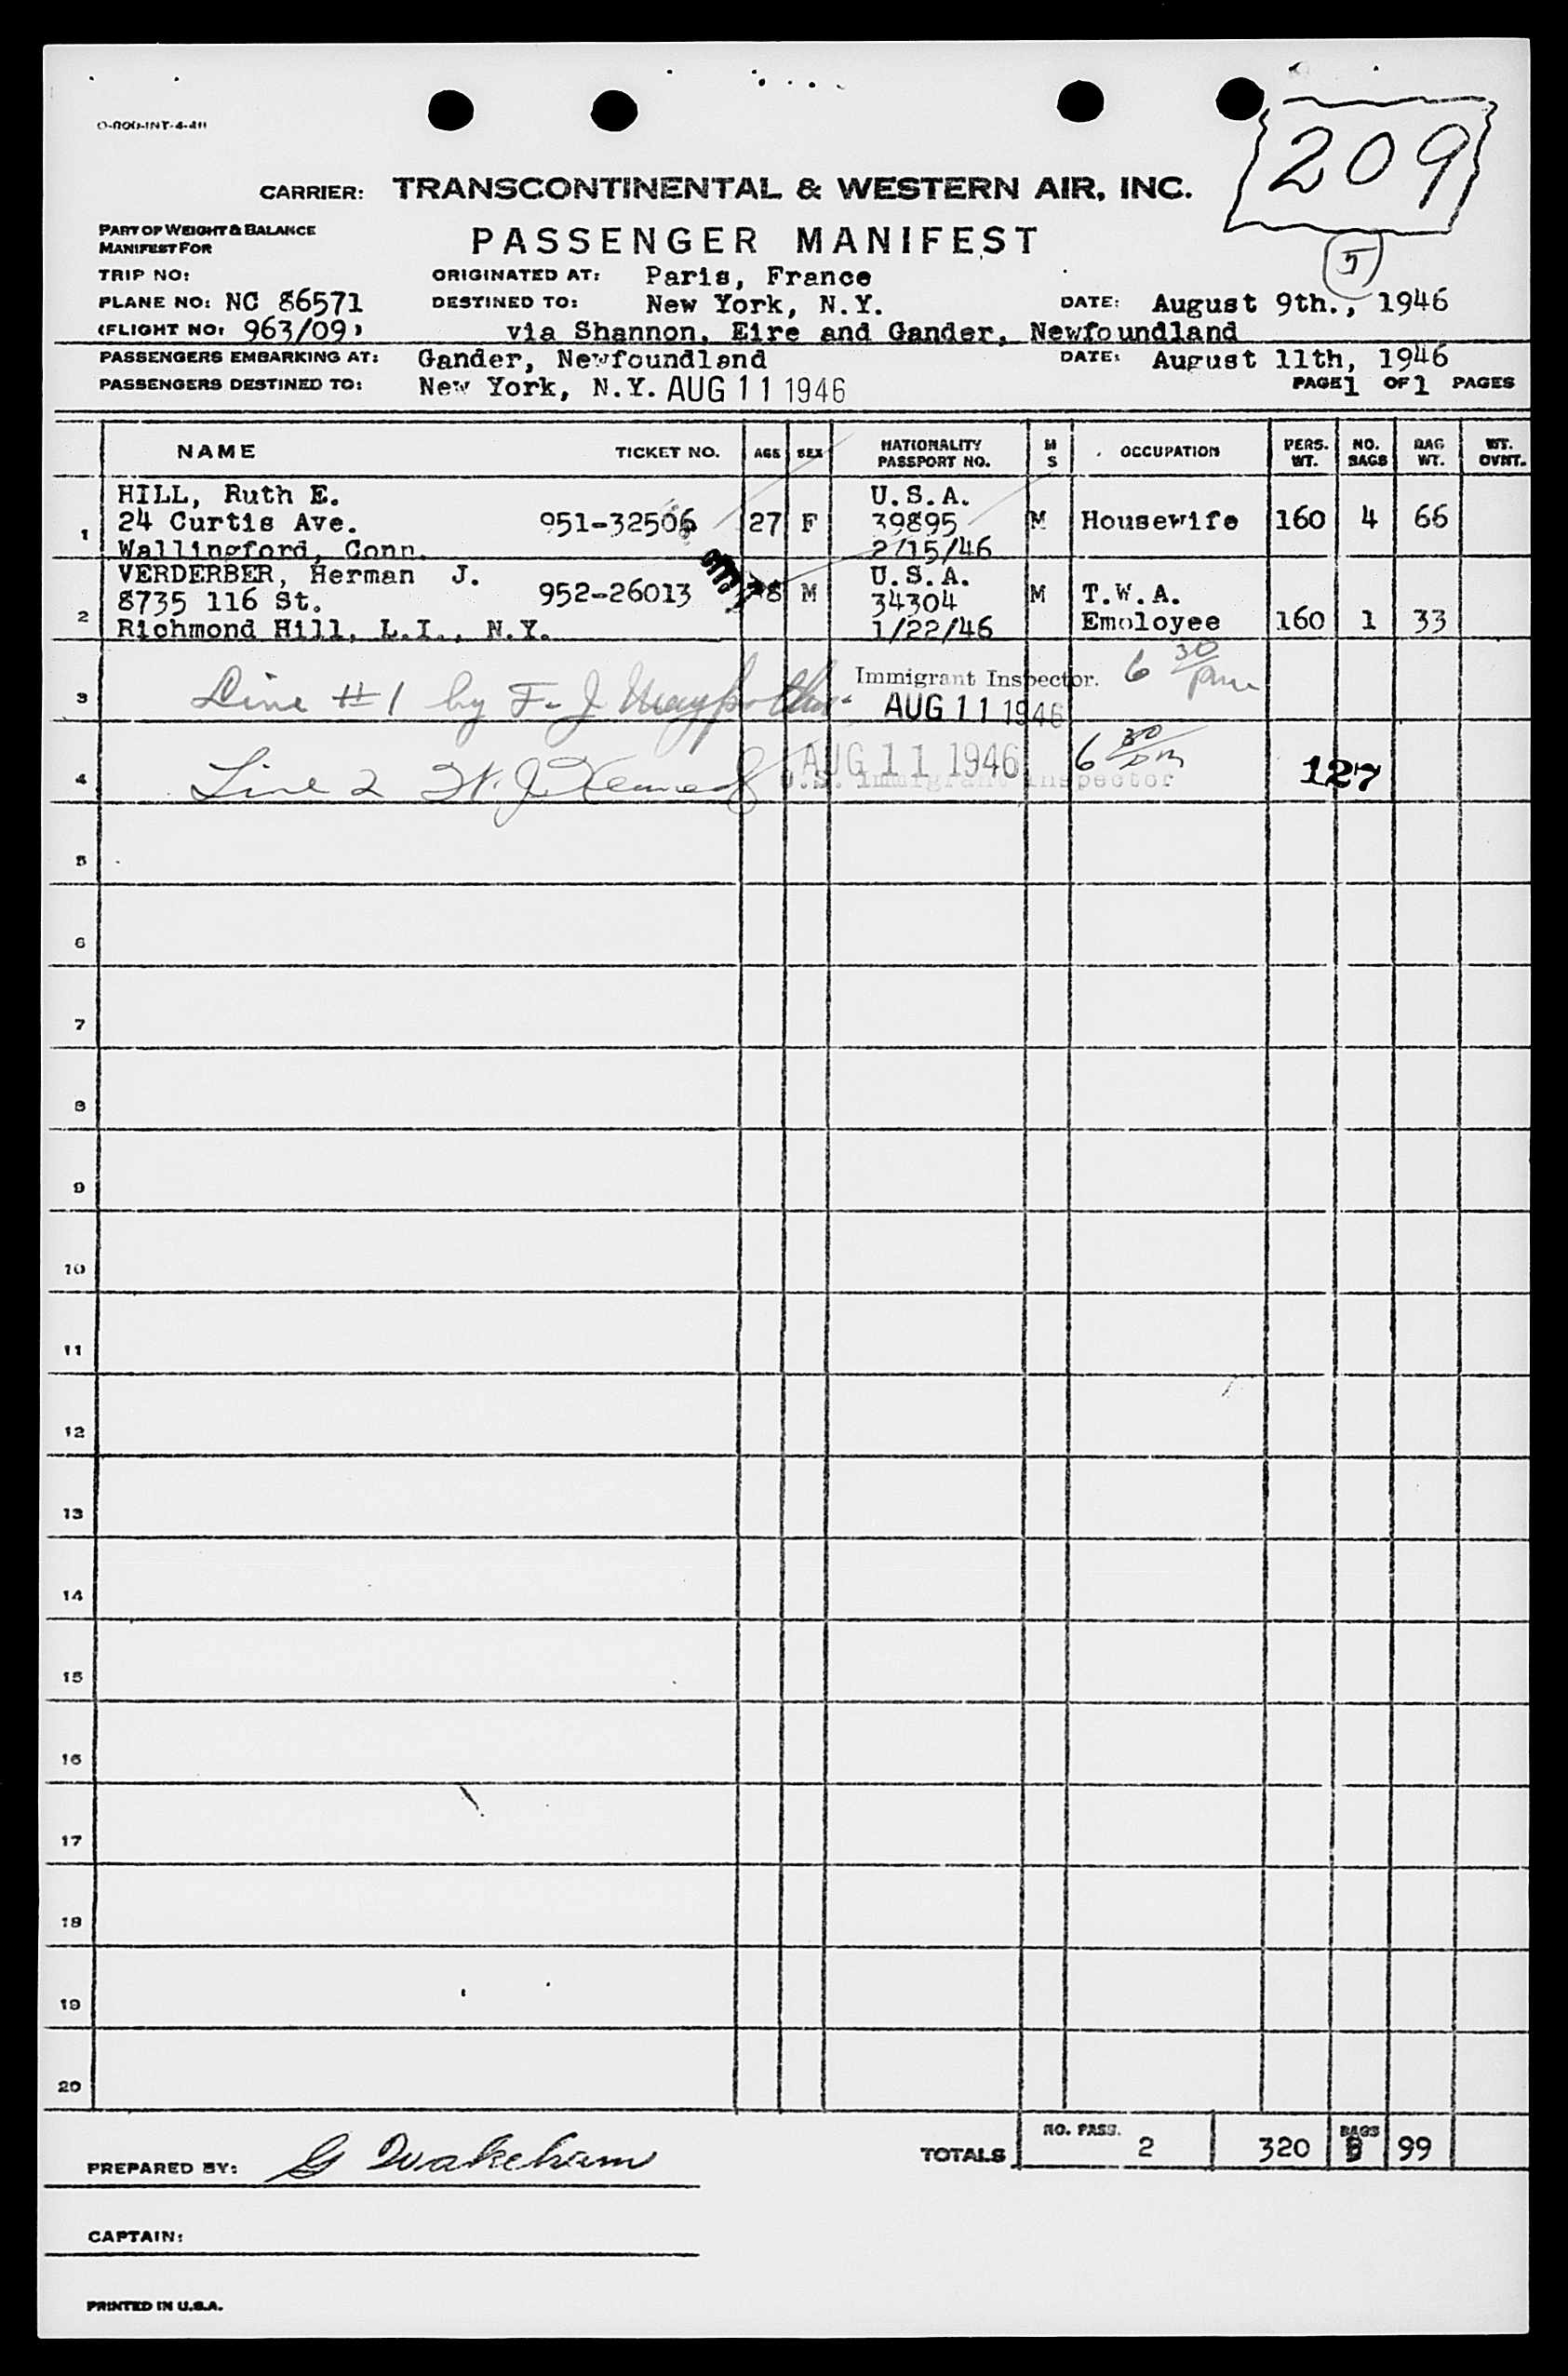 209
CARRIER: TRANSCONTINENTAL & WESTERN AIR, INC.
PART OF WEIGHT & BALANCE
MANIFEST FOR
PASSENGER MANIFEST
5
TRIP NO:
ORIGINATED AT: Paris, France
PLANE NO: NC 86571
DESTINED TO: New York, N.Y.
DATE: August 9th., 1946
(FLIGHT NO: 963/09)
via Shannon, Eire and Gander, Newfoundland
PASSENGERS EMBARKING AT: Gander, Newfoundland
DATE: August 11th, 1946
PASSENGERS DESTINED TO: New York, N.Y. AUG 11 1946
PAGE 1 OF 1 PAGES
NAME TICKET NO. AGE SEX NATIONALITY PASSPORT NO. M S OCCUPATION PERS. WT. NO. BAGS BAG WT. WT. OVNT.
HILL, Ruth E. U.S.A.
1 24 Curtis Ave. 951-32506 27 F 39895 M Housewife 160 4 66
Wallingford, Conn. 2/15/46
VERDERBER, Herman J. U.S.A.
2 8735 116 St. 952-26013 M 34304 M T.W.A.
Richmond Hill, L.I., N.Y. 1/22/46 Employee 160 1 33
3 Line #1 by F. J. Immigrant Inspector. 6 30 pm
AUG 11 1946
4 Line 2 AUG 11 1946 6 30 pm 127
U.S. Immigrant Inspector
5
6
7
8
9
10
11
12
13
14
15
16
17
18
19
20
TOTALS NO. PASS. 2 320 BAGS 99
PREPARED BY: G Wakeham
CAPTAIN:
PRINTED IN U.S.A.